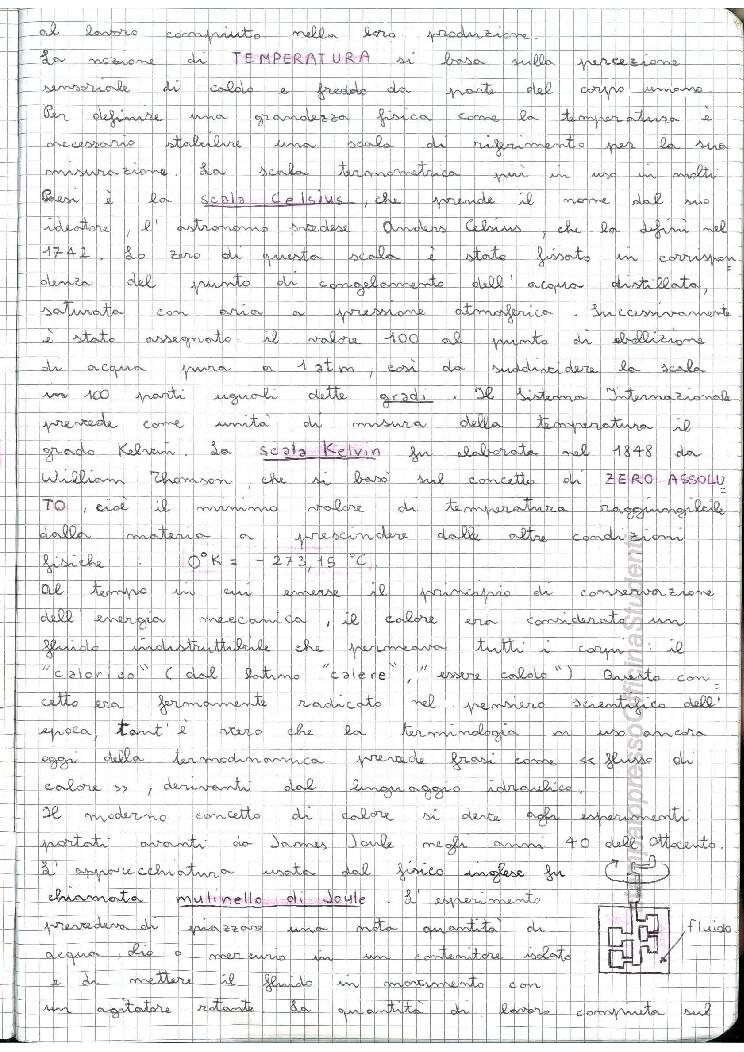 al lavoro compiuto nella loro produzione.
La nozione di TEMPERATURA si basa sulla percezione
sensoriale di caldo e freddo da parte del corpo umano
Per definire una grandezza fisica come la temperatura è
necessario stabilire una scala di riferimento per la sua
misurazione. La scala termometrica più in uso in molti
Paesi è la scala Celsius, che prende il nome dal suo
ideatore, l'astronomo svedese Anders Celsius, che la definì nel
1742. Lo zero di questa scala è stato fissato in corrispon
denza del punto di congelamento dell'acqua distillata,
saturata con aria a pressione atmosferica. Successivamente
è stato assegnato il valore 100 al punto di ebollizione
di acqua pura a 1 atm, così da suddividere la scala
in 100 parti uguali dette gradi. Il Sistema Internazionale
prevede come unità di misura della temperatura il
grado Kelvin. La scala Kelvin fu elaborata nel 1848 da
William Thomson, che si basò sul concetto di ZERO ASSOLU
TO, cioè il minimo valore di temperatura raggiungibile
dalla materia a prescindere dalle altre condizioni
fisiche: 0°K = -273,15 °C.
Al tempo in cui emerse il principio di conservazione
dell'energia meccanica, il calore era considerato un
fluido indistruttibile che permeava tutti i corpi: il
"calorico" (dal latino "calere", "essere caldo"). Questo con
cetto era fermamente radicato nel pensiero scientifico dell'
epoca, tant'è vero che la terminologia in uso ancora
oggi della termodinamica prevede frasi come << flusso di
calore >>, derivanti dal linguaggio idraulico.
Il moderno concetto di calore si deve agli esperimenti
portati avanti da James Joule negli anni 40 dell'Ottocento.
L'apparecchiatura usata dal fisico inglese fu
chiamata mulinello di Joule. L'esperimento
prevedeva di piazzare una nota quantità di
acqua, olio o mercurio in un contenitore isolato
e di mettere il fluido in movimento con
un agitatore rotante. La quantità di lavoro compiuta sul
fluido